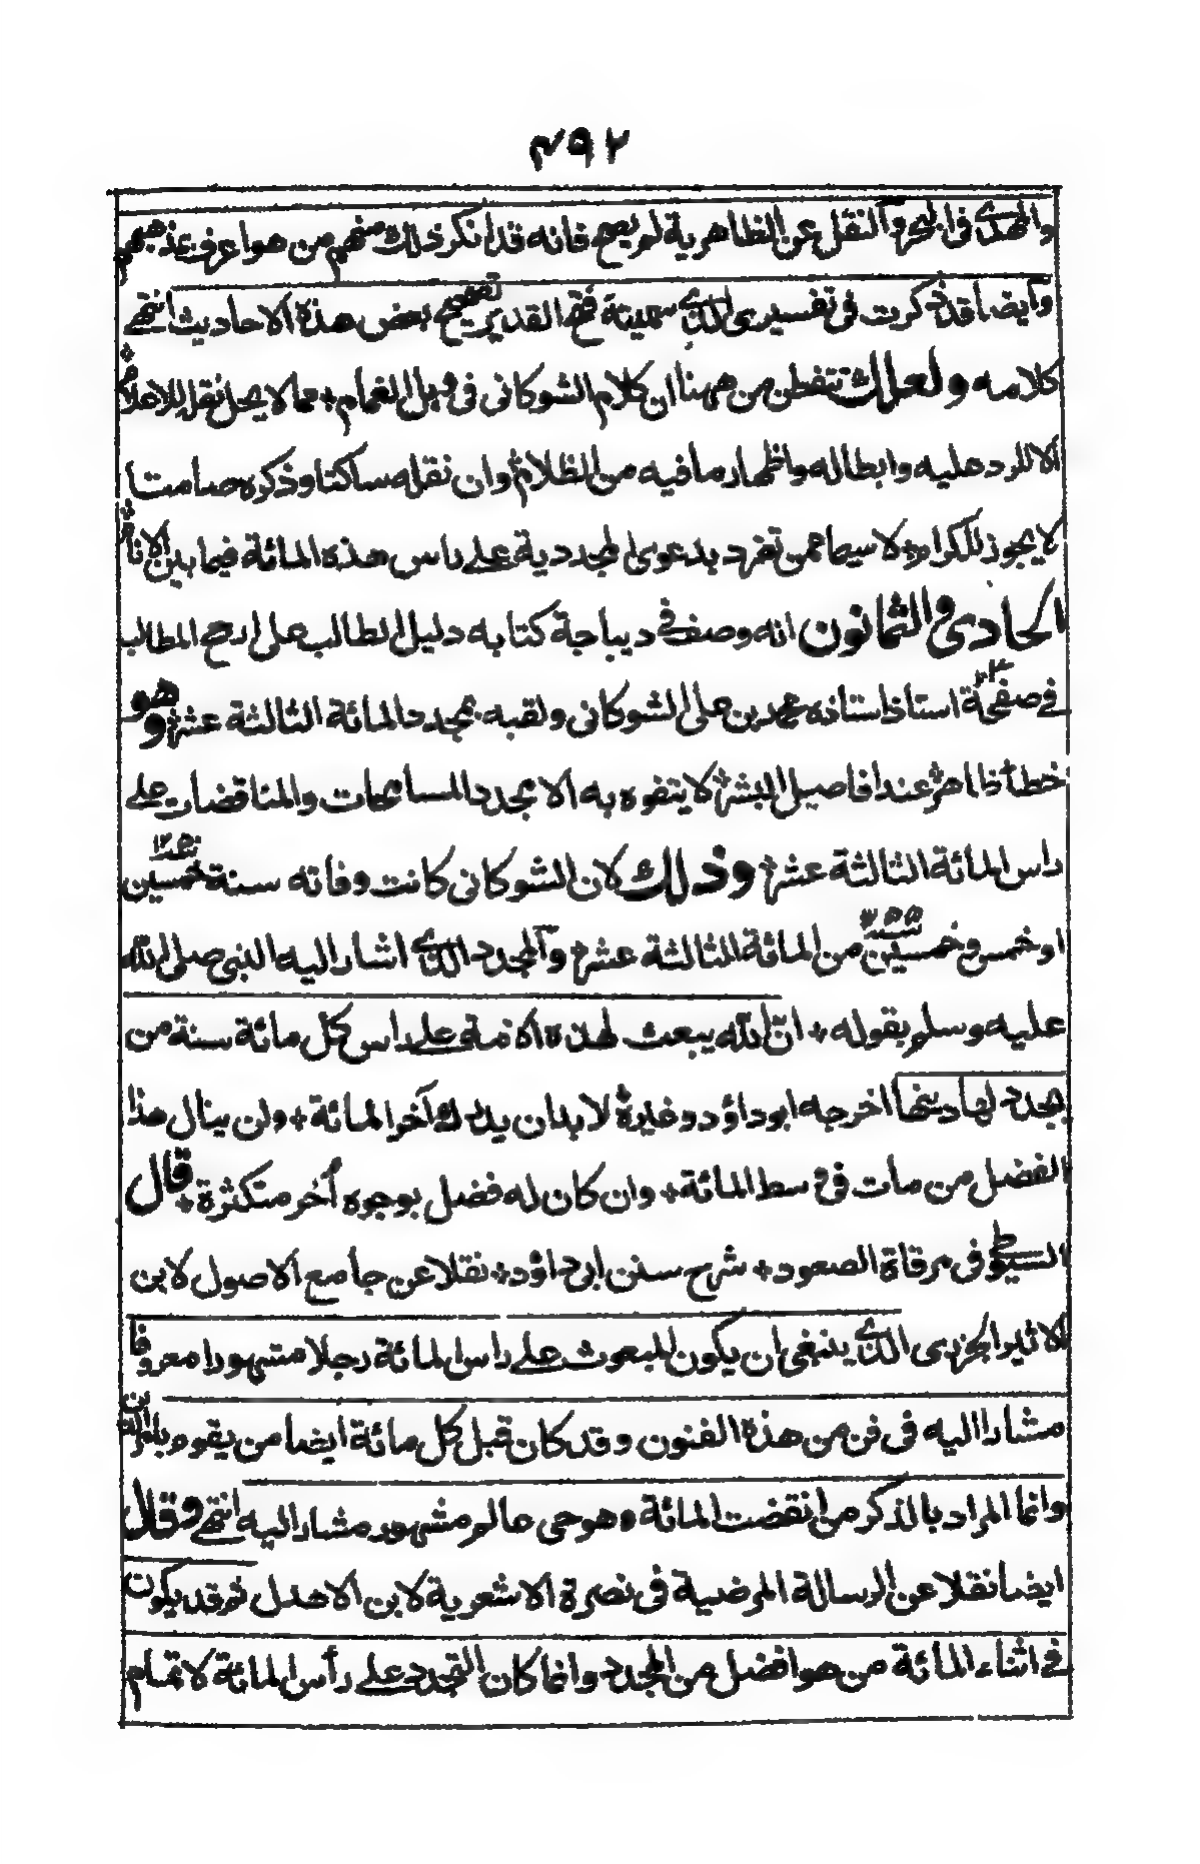 ٤٩٢
والمهدى فى البحر وآلنقل عن الظاهرية لم يصح فانه قد انكر ذلك منهم من هو اعرف بمذهبهم
وآيضا قد ذكرت فى تفسيرى الذى سميته فتح القدير تصحيح بعض هذه الاحاديث انتهى
كلامه ولعلك تتفطن من ههنا ان كلام الشوكانى فى وبل الغمام + مما لا يحل نقله للاعلام +
الا للرد عليه وابطاله واظهار ما فيه من الظلام + وان نقله ساكتا وذكره صامتا
لا يجوز للكرام + لا سيما ممن تفرد بدعوى المجددية على راس هذه المائة فيما بين الانام +
الحادى والثمانون انه وصف فى ديباجة كتابه دليل الطالب على ارجح المطالب
فى صفحة ٢ استاذ استاذه محمد بن على الشوكانى ولقبه بمجدد المائة الثالثة عشر + وهو
خطأ فاحش عند افاضل البشر + لا يتفوه به الا مجدد المسامحات والمناقضات على
راس المائة الثالثة عشر + وذلك لان الشوكانى كانت وفاته سنة خمسين
او خمس وخمسين من المائة الثالثة عشر + وآلمجدد الذى اشار اليه النبى صلى الله
عليه وسلم بقوله + ان الله يبعث لهذه الامة على راس كل مائة سنة من
يجدد لها دينها اخرجه ابو داؤد وغيره لا بد ان يدرك آخر المائة + ولن ينال هذا
الفضل من مات فى وسط المائة + وان كان له فضل بوجوه أخر متكثرة + قال
السيوطى فى مرقاة الصعود + شرح سنن ابى داؤد + نقلا عن جامع الاصول لابن
الاثير الجزرى الذى ينبغى ان يكون المبعوث على راس المائة رجلا مشهورا معروفا
مشارا اليه فى فن من هذه الفنون وقد كان قبل كل مائة ايضا من يقوم بامر الدين
وانما المراد بالذكر من انقضت المائة وهو حى عالم مشهور مشار اليه انتهى وقال
ايضا نقلا عن الرسالة المرضية فى نصرة الاشعرية لابن الاهدل ثم قد يكون
فى اثناء المائة من هو افضل من المجدد وانما كان التجدد على رأس المائة لانقسام